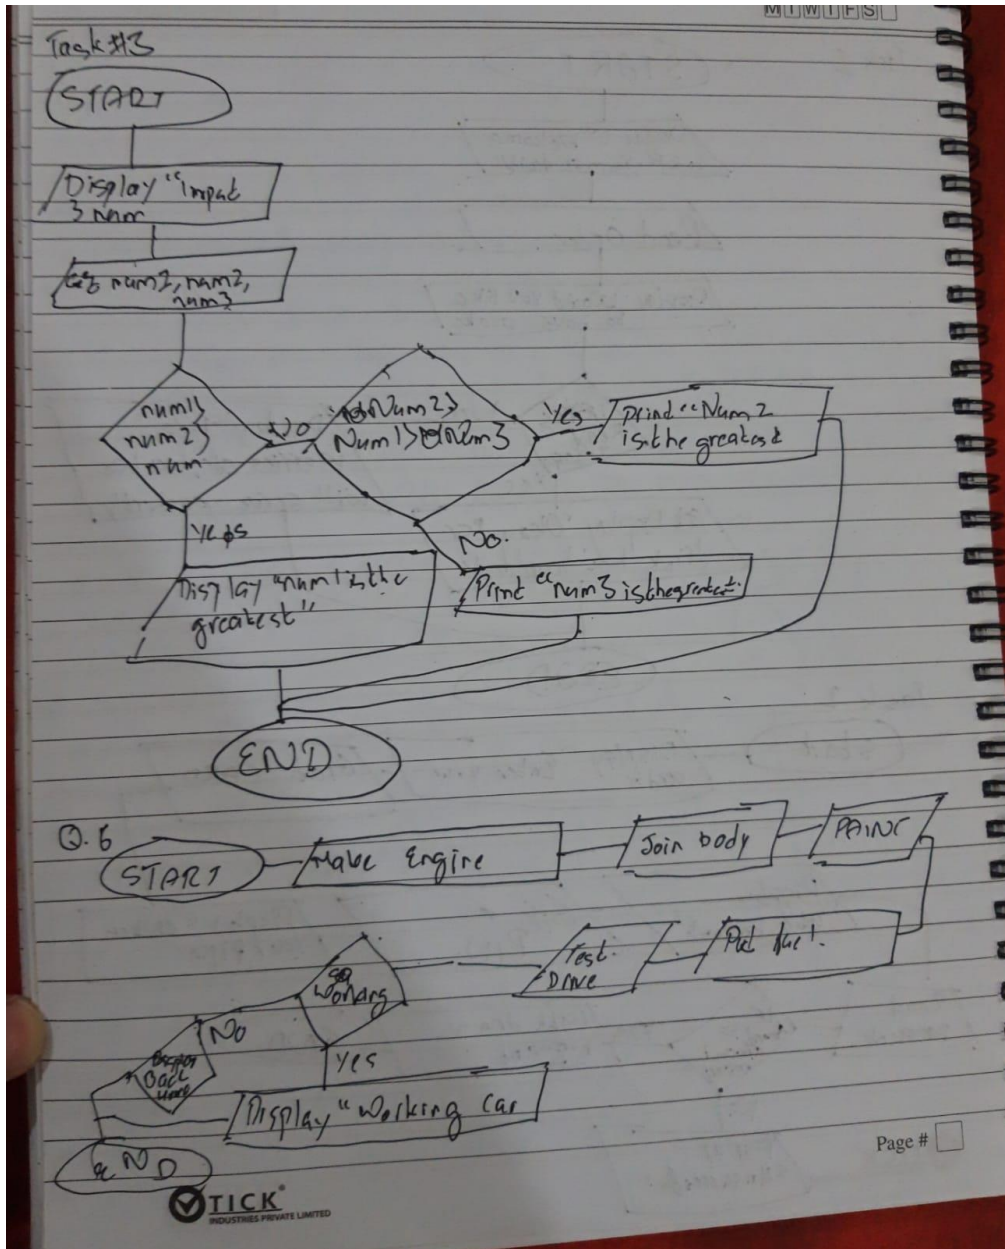 M T W T F S
Task #3
START
Display "Imput
3 num
Get num2, num2,
num3
num1>
num2>
num
No
Num2>
Num1> Num3
Yes
print "Num2
is the greatest
Yes
No.
Display "num1 is the
greatest"
Print "num3 is the greatest.
END
Q.6
START
Make Engine
Join body
PAINT
Put fuel.
Test
Drive
Working
No
Yes
Back
Display "Working Car
END
Page #
TICK
INDUSTRIES PRIVATE LIMITED